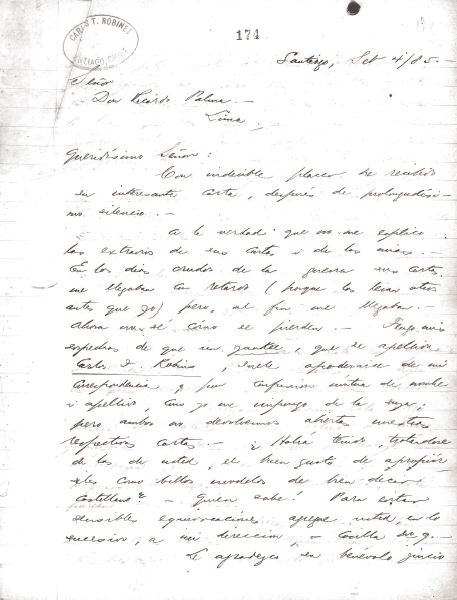 CARLOS T. ROBINET
SANTIAGO, CHILE
174
Santiago, Set 4/85.-
Señor
Don Ricardo Palma.-
Lima.
Queridísimo Señor:
Con indecible placer he recibido
su interesante carta, después de prolongadísi-
mo silencio.-
A la verdad que no me esplico
los extravios de sus cartas i de las mias.
En los dias crudos de la guerra sus cartas
me llegaban con retardo (porque las leian otros
antes que yo) pero, al fin me llegaban.
Ahora no sé como se pierden.- Tengo mis
sospechas de que un yankee, que se apellida
Carlos F. Robins, suele apoderarse de mi
correspondencia, por confusion mutua de nombre
i apellido, como yo me impongo de la suya;
pero ambos nos devolvemos abiertas nuestras
respectivas cartas.- ¿Habrá tenido, tratándose
de las de usted, el buen gusto de apropiár-
selas como bellos modelos de bien decir
castellano?- Quien sabe! Para evitar
sensibles equivocaciones agregue usted, en lo
sucesivo, a mi direccion,- Casilla 9.-
Le agradezco su benévolo juicio